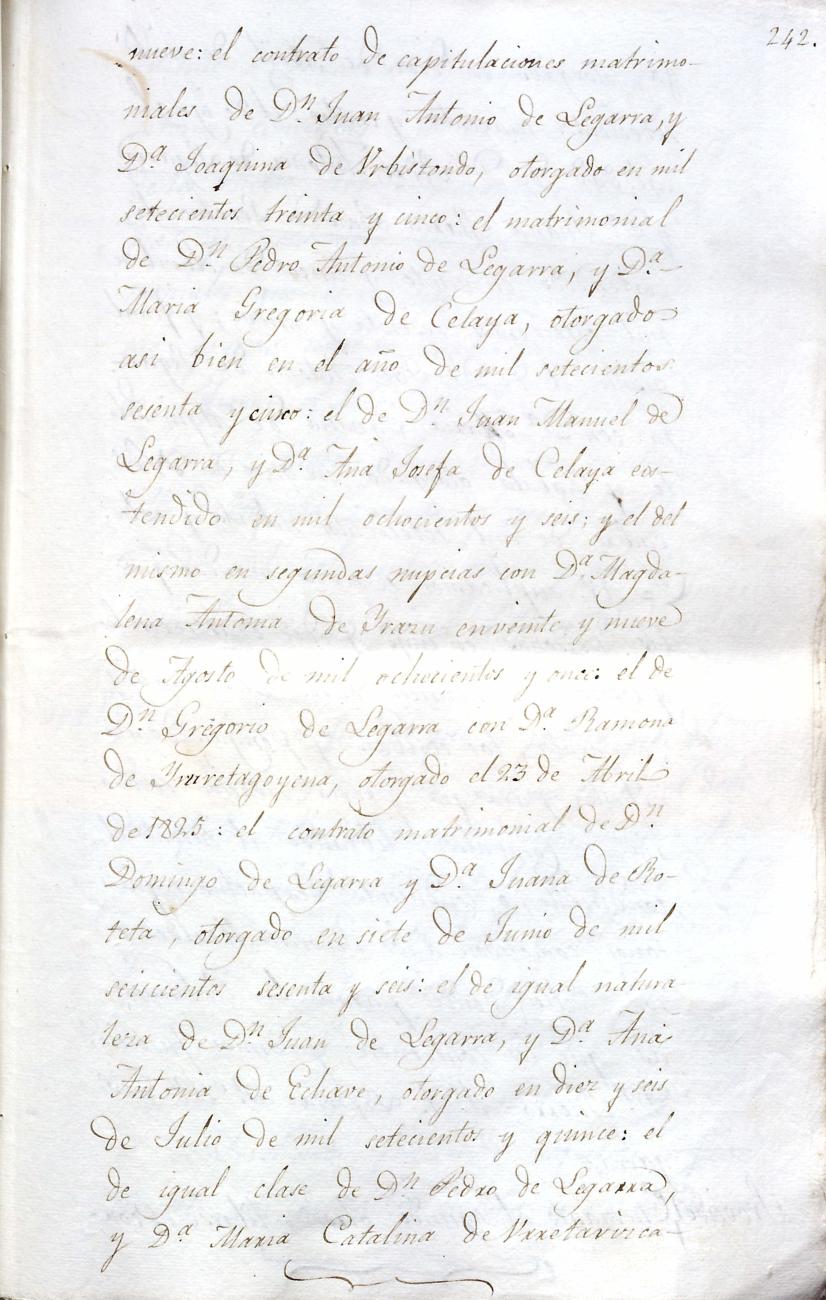 242.
nueve: el contrato de capitulaciones matrimo-
niales de Dn Juan Antonio de Legarra, y
Da. Joaquina de Vrbistondo, otorgado en mil
setecientos treinta y cinco: el matrimonial
de Dn. Pedro Antonio de Legarra, y Da.
Maria Gregoria de Celaya, otorgado
asi bien en el año de mil setecientos
sesenta y cinco: el de Dn. Juan Manuel de
Legarra, y Da. Ana Josefa de Celaya es-
tendido en mil ochocientos y seis; y el del
mismo en segundas nupcias con Da. Magda-
lena Antonia de Yrazu en veinte y nueve
de Agosto de mil ochocientos y once: el de
Dn. Gregorio de Legarra con Da. Ramona
de Yruretagoyena, otorgado el 23 de Abril
de 1825: el contrato matrimonial de Dn.
Domingo de Legarra y Da. Juana de Ro-
teta, otorgado en siete de Junio de mil
seiscientos sesenta y seis: el de igual natura-
leza de Dn. Juan de Legarra, y Da. Ana
Antonia de Echave, otorgado en diez y seis
de Julio de mil setecientos y quince: el
de igual clase de Dn. Pedro de Legarra,
y Da. Maria Catalina de Vrretavizca-